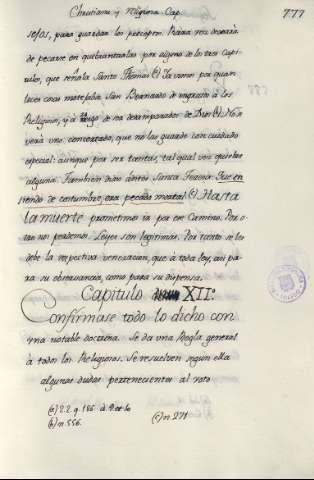 Christiano y Religioso Cap. 777
sejos, para guardar los preceptos. Rara vez dexará
de pecarse en quebrantarlos por alguno de los tres capi-
tulos, que señala Santo Thomas (a) Ya vimos por quan
leves cosas motejaba San Bernardo de ingratos a los
Religiosos, y a riesgo de ser desamparados de Dios (b) No
verá uno concertado, que no las guarde con cuidado
especial: aunque por ser tantas, tal qual vez quiebre
alguna. Tambien dixo antes Santa Teresa: Que en
siendo de costumbre, era pecado mortal (c) Hasta
la muerte prometimos ir por en Camino. Por o-
tar nos perdemos. Leyes son legitimas. Por tanto se les
debe la respectiva veneracion, que à toda ley, asi pa-
ra su observancia, como para su dispensa.
Capitulo XIIº.
Confirmase todo lo dicho con
una notable doctrina. Se da una Regla general
à todos los Religiosos. Se resuelven segun ella
algunas dudas pertenecientes al voto
(a) 2.2. q. 186. a. 9. et 10
(b) n. 556.
(c) n. 271